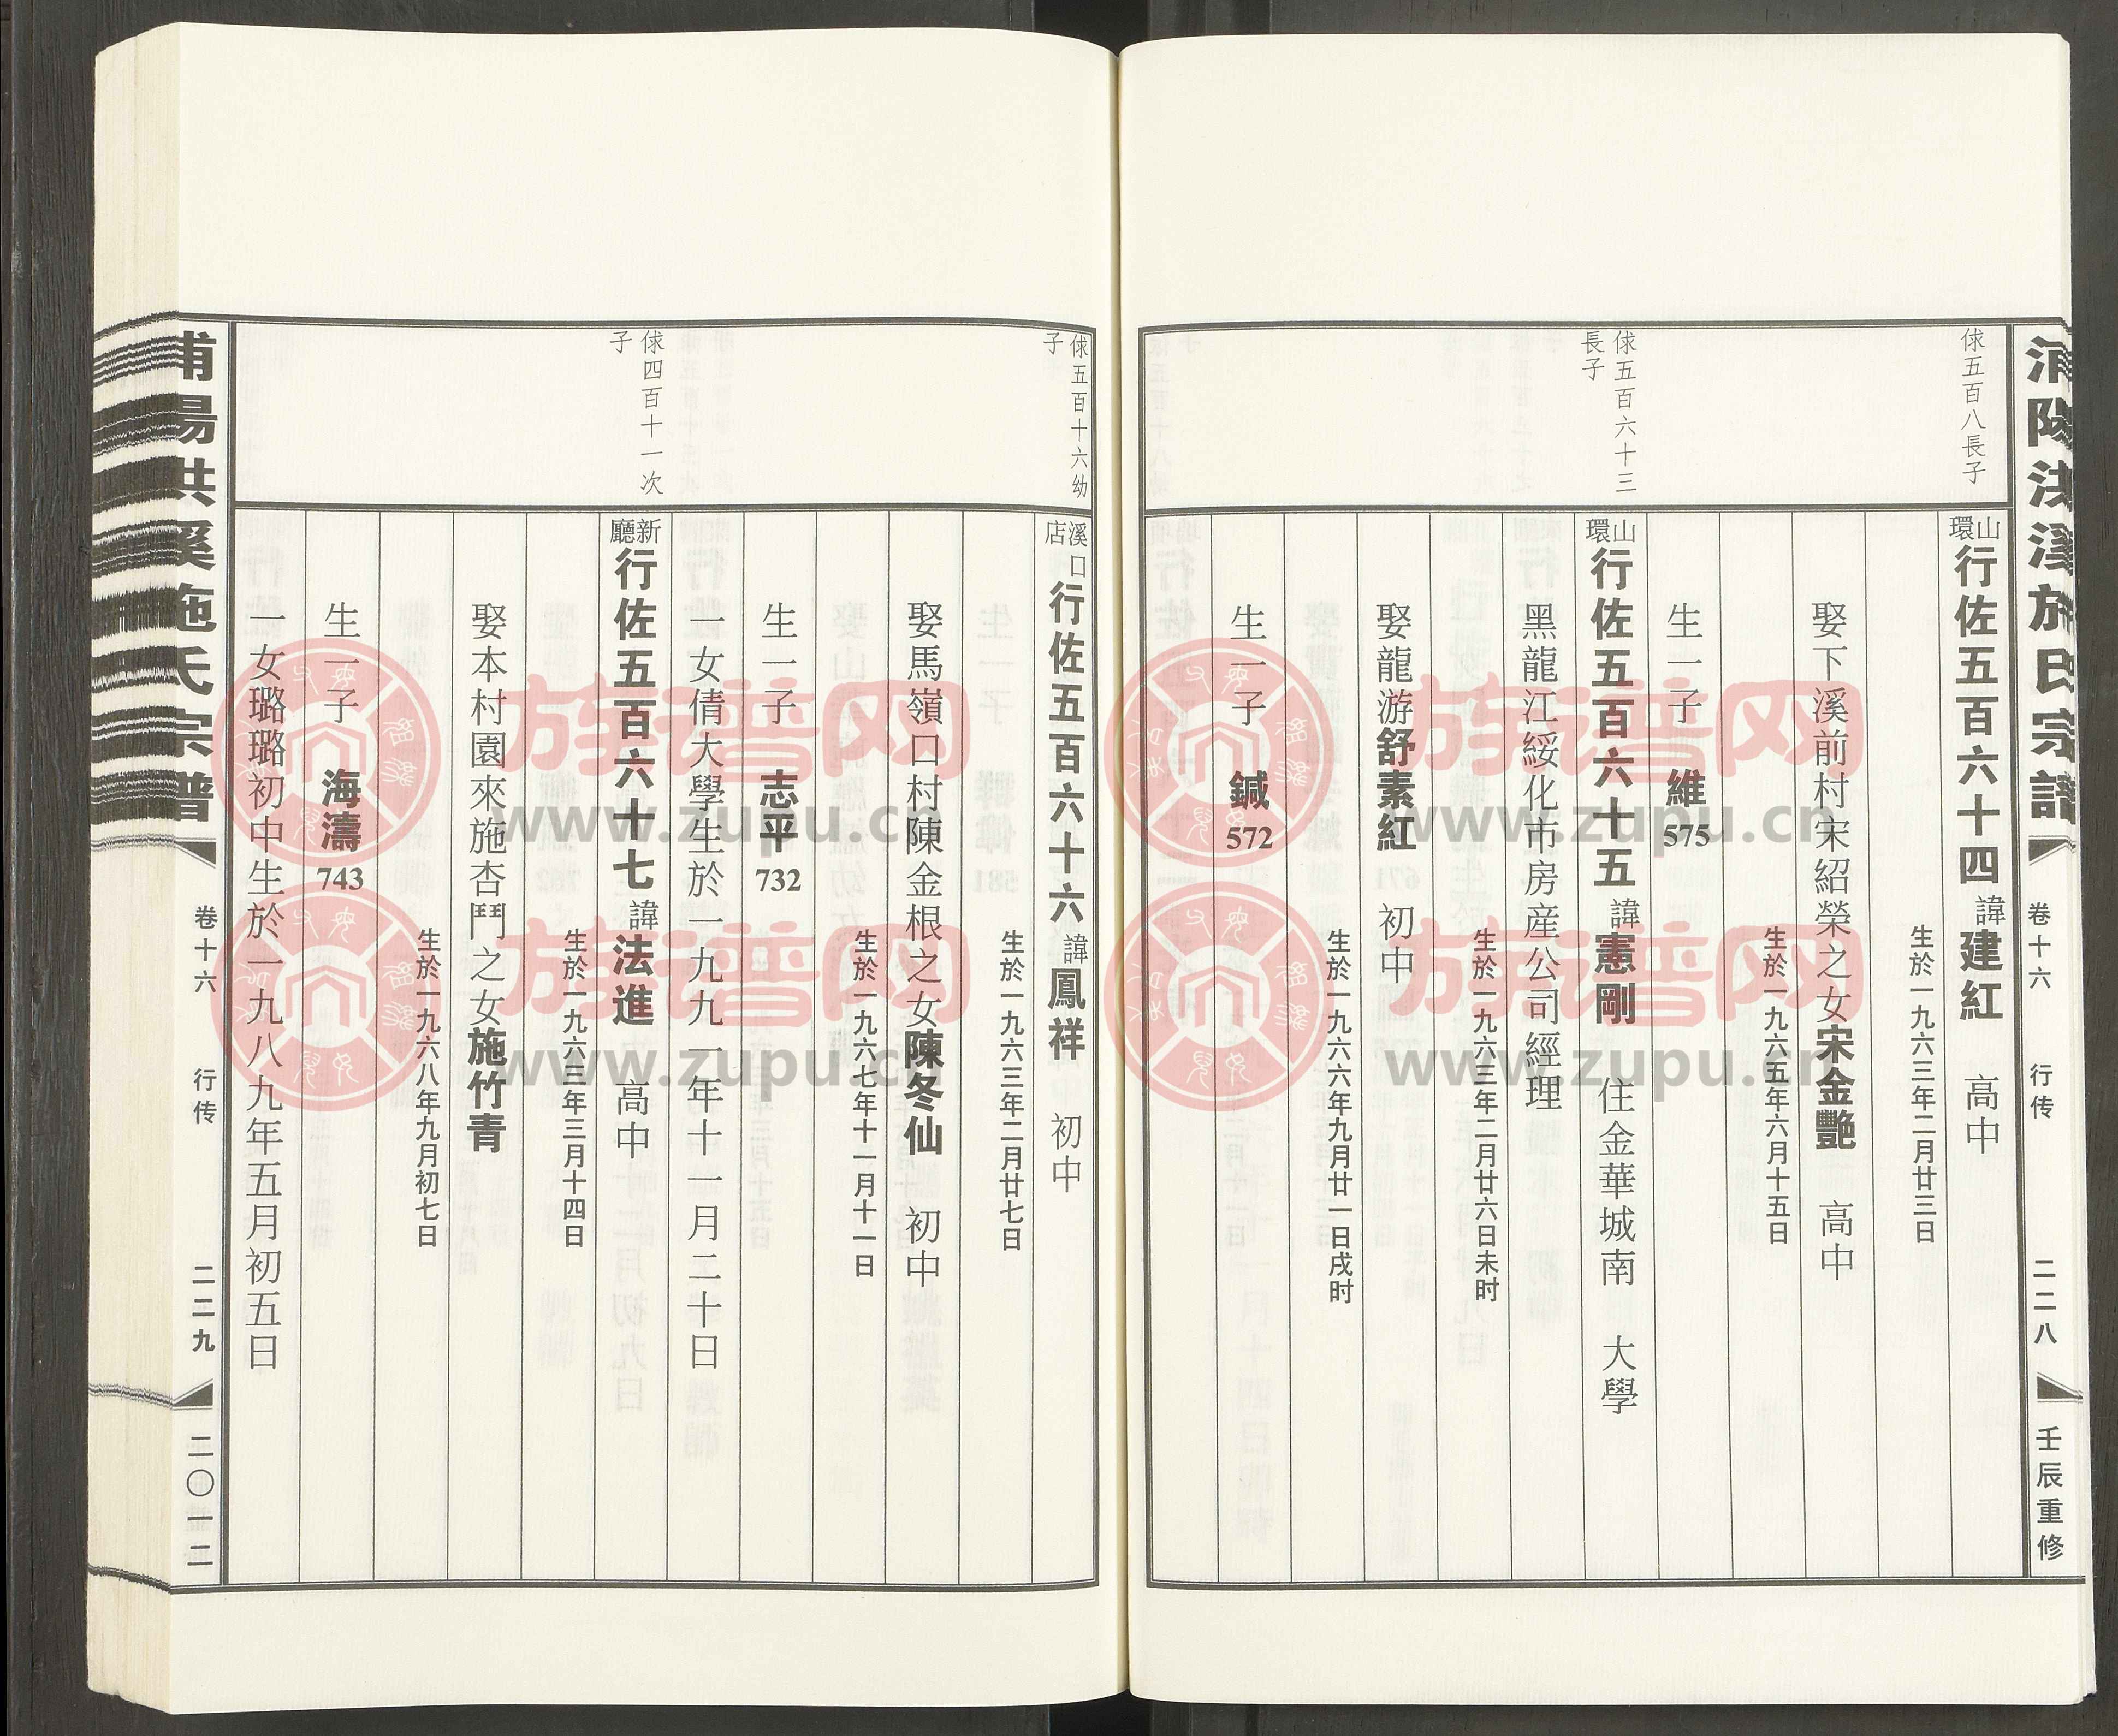 浦陽洪溪施氏宗譜
卷十六
行传
二二八
壬辰重修
俅五百八長子
山環
行佐五百六十四諱建紅 高中
生於一九六三年二月廿三日
娶下溪前村宋紹榮之女宋金艷 高中
生於一九六五年六月十五日
生一子 維575
俅五百六十三
長子
山環
行佐五百六十五諱憲剛 住金華城南 大學
黑龍江綏化市房産公司經理
生於一九六三年二月廿六日未时
娶龍游舒素紅 初中
生於一九六六年九月廿一日戌时
生一子 鍼572
俅五百十六幼
子
溪口
店
行佐五百六十六諱鳳祥 初中
生於一九六三年二月廿七日
娶馬嶺口村陳金根之女陳冬仙 初中
生於一九六七年十一月十一日
生一子 志平732
一女倩大學生於一九九一年十一月二十日
俅四百十一次
子
新廳
行佐五百六十七諱法進 高中
生於一九六三年三月十四日
娶本村園來施杏鬥之女施竹青
生於一九六八年九月初七日
生一子 海濤743
一女璐璐初中生於一九八九年五月初五日
浦陽洪溪施氏宗譜
卷十六
行传
二二九
二〇一二
族谱网
www.zupu.cn
族谱网
www.zupu.cn
族谱网
www.zupu.cn
族谱网
www.zupu.cn